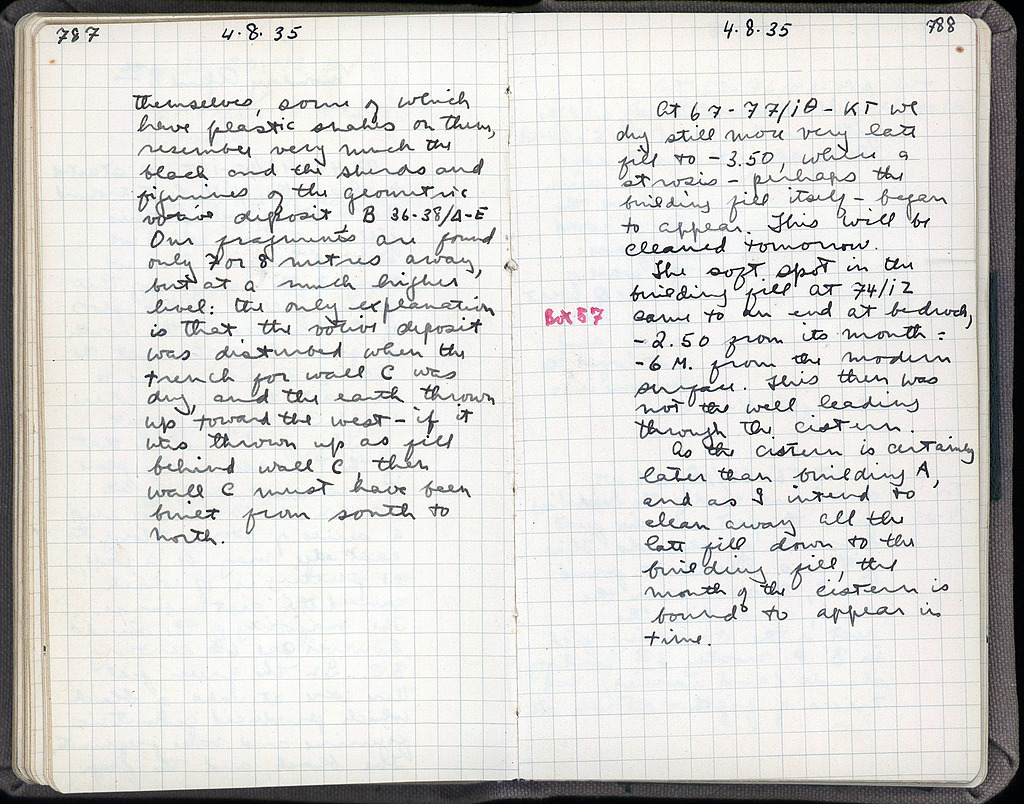 787
4.8.35
themselves, some of which
have plastic snakes on them,
resember very much the
black and the sherds and
figurines of the geometric
votive deposit B 36-38/Δ-E
Our fragments are found
only 7 or 8 metres away,
but at a much higher
level: the only explanation
is that the votive deposit
was disturbed when the
trench for wall C was
dug, and the earth thrown
up toward the west - if it
was thrown up as fill
behind wall C, then
wall C must have been
built from south to
north.
4.8.35
788
At 67-77/ιΘ-ΚΓ we
dug still more very late
fill to -3.50, where a
strosis - perhaps the
building fill itself - began
to appear. This will be
cleaned tomorrow.
The soft spot in the
building fill at 74/ιZ
Box 57
came to an end at bedrock,
-2.50 from its mouth =
-6 M. from the modern
surface. This then was
not the well leading
through the cistern.
As the cistern is certainly
later than building A,
and as I intend to
clean away all the
late fill down to the
building fill, the
mouth of the cistern is
bound to appear in
time.